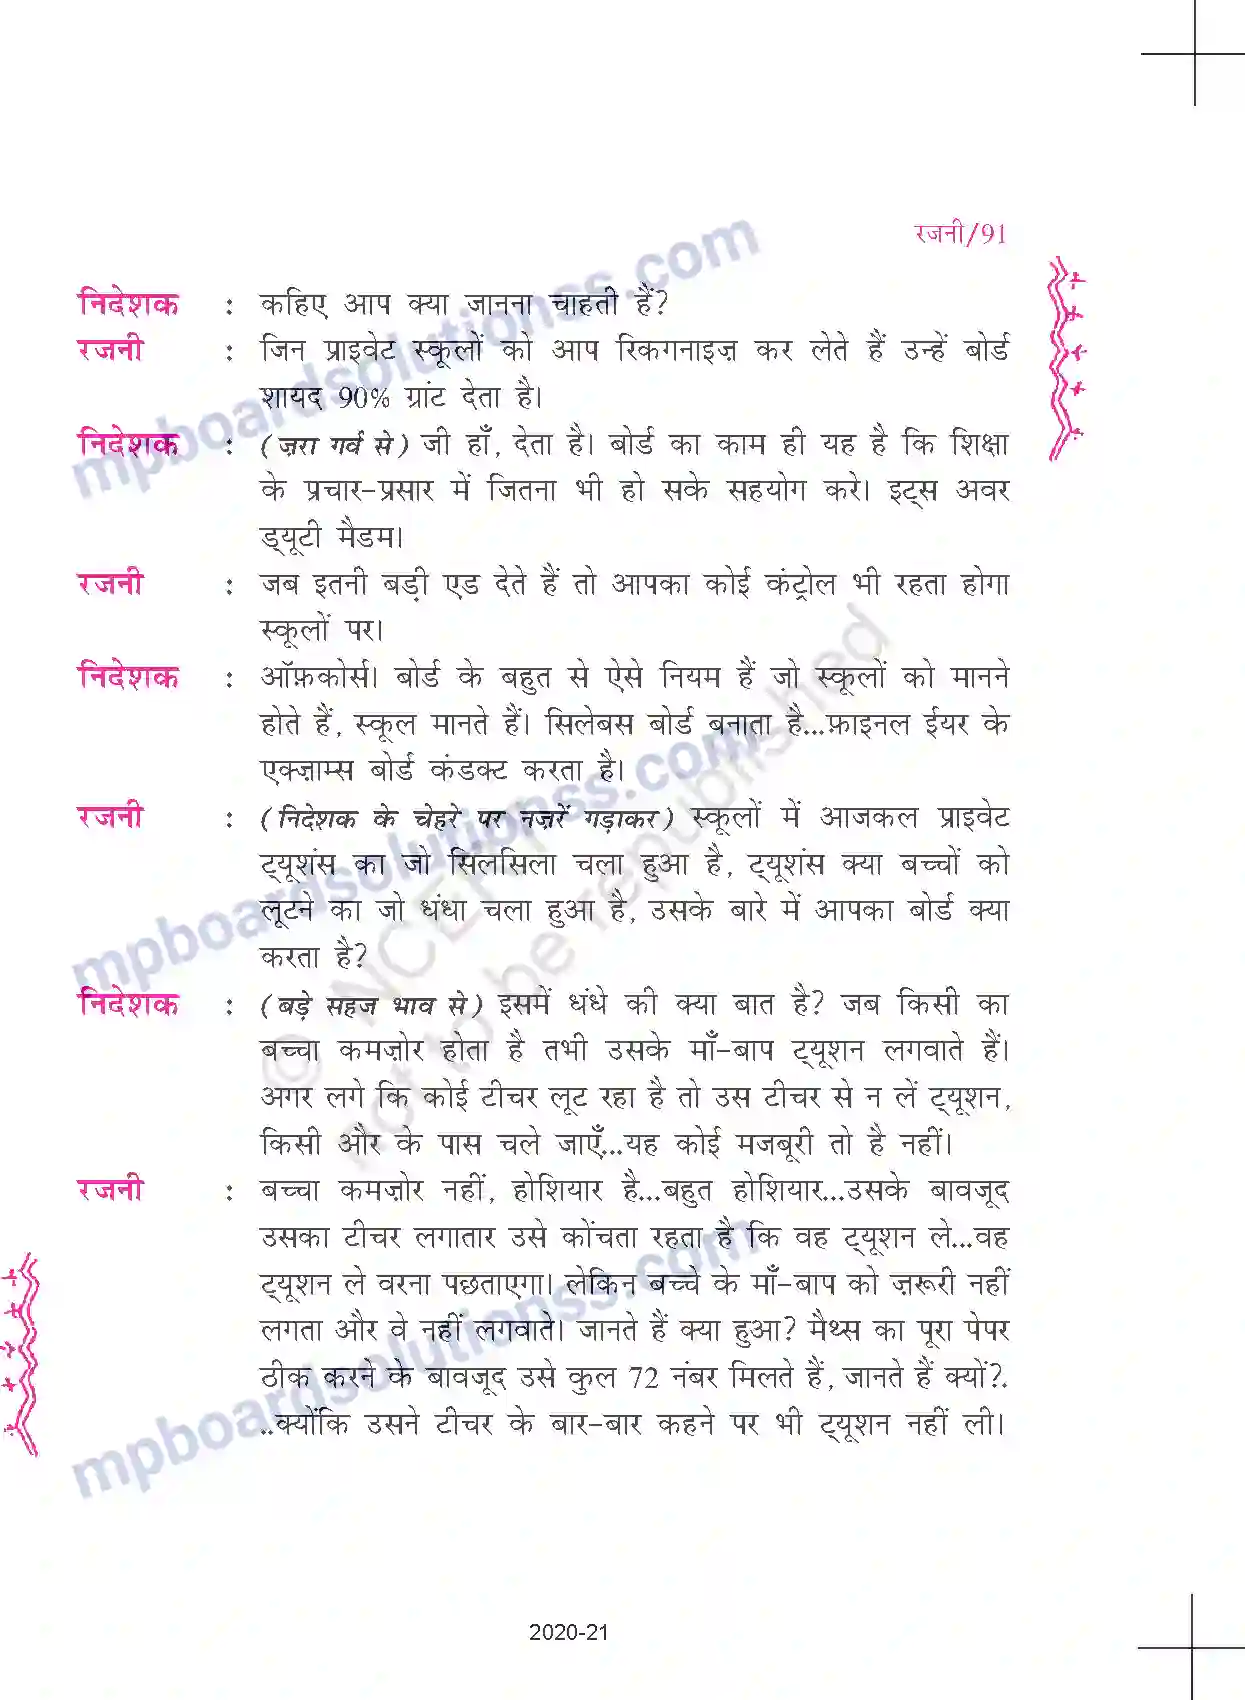 रजनी/91
निदेशक : कहिए आप क्या जानना चाहती हैं?
रजनी : जिन प्राइवेट स्कूलों को आप रिकगनाइज़ कर लेते हैं उन्हें बोर्ड
शायद 90% ग्रांट देता है।
निदेशक : (ज़रा गर्व से) जी हाँ, देता है। बोर्ड का काम ही यह है कि शिक्षा
के प्रचार-प्रसार में जितना भी हो सके सहयोग करे। इट्स अवर
ड्यूटी मैडम।
रजनी : जब इतनी बड़ी एड देते हैं तो आपका कोई कंट्रोल भी रहता होगा
स्कूलों पर।
निदेशक : ऑफ़कोर्स। बोर्ड के बहुत से ऐसे नियम हैं जो स्कूलों को मानने
होते हैं, स्कूल मानते हैं। सिलेबस बोर्ड बनाता है...फ़ाइनल ईयर के
एक्ज़ाम्स बोर्ड कंडक्ट करता है।
रजनी : (निदेशक के चेहरे पर नज़रें गड़ाकर) स्कूलों में आजकल प्राइवेट
ट्यूशंस का जो सिलसिला चला हुआ है, ट्यूशंस क्या बच्चों को
लूटने का जो धंधा चला हुआ है, उसके बारे में आपका बोर्ड क्या
करता है?
निदेशक : (बड़े सहज भाव से) इसमें धंधे की क्या बात है? जब किसी का
बच्चा कमज़ोर होता है तभी उसके माँ-बाप ट्यूशन लगवाते हैं।
अगर लगे कि कोई टीचर लूट रहा है तो उस टीचर से न लें ट्यूशन,
किसी और के पास चले जाएँ...यह कोई मजबूरी तो है नहीं।
रजनी : बच्चा कमज़ोर नहीं, होशियार है...बहुत होशियार...उसके बावजूद
उसका टीचर लगातार उसे कोंचता रहता है कि वह ट्यूशन ले...वह
ट्यूशन ले वरना पछताएगा। लेकिन बच्चे के माँ-बाप को ज़रूरी नहीं
लगता और वे नहीं लगवाते। जानते हैं क्या हुआ? मैथ्स का पूरा पेपर
ठीक करने के बावजूद उसे कुल 72 नंबर मिलते हैं, जानते हैं क्यों?.
..क्योंकि उसने टीचर के बार-बार कहने पर भी ट्यूशन नहीं ली।
mpboardsolutionss.com
mpboardsolutionss.com
mpboardsolutionss.com
© NCERT
not to be republished
2020-21